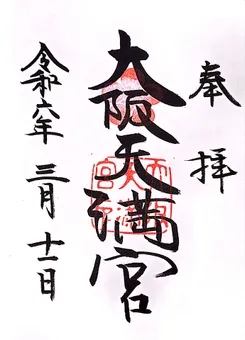 奉拝
大阪天満宮
令和六年 三月 十一日